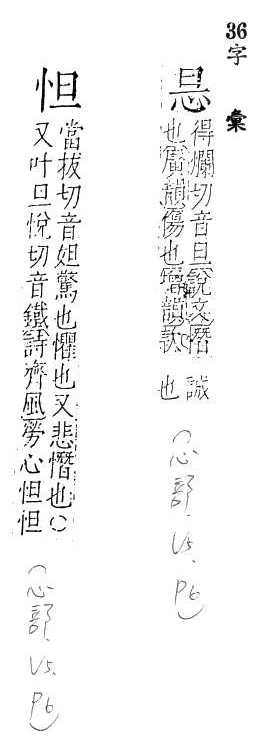 36字彙
悬
得爛切音旦說文憯
也廣韻傷也增韻欵
誠
也
(心部.V5.P6)
怛
當拔切音妲驚也懼也又悲憯也○
又叶旦悅切音鐵詩齊風勞心怛怛
(心部.V5.P6)